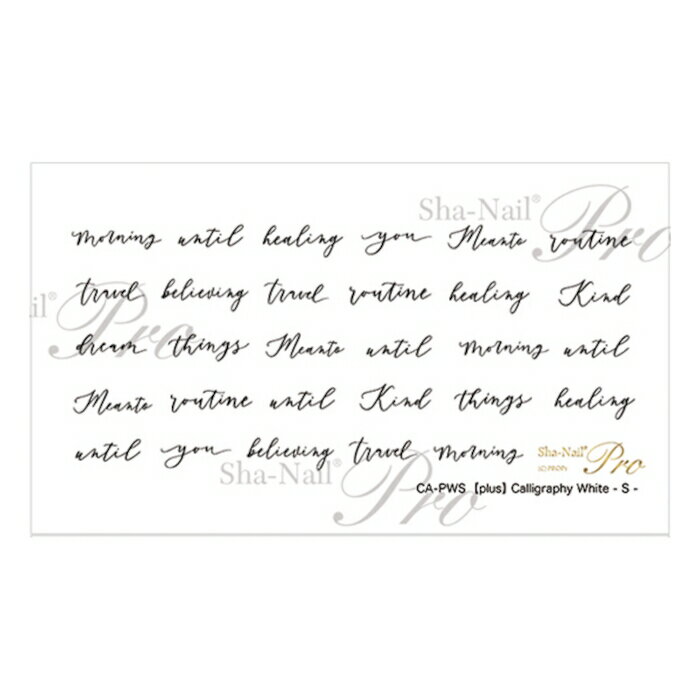 Sha-Nail® Pro
morning until healing you Meanto routine
travel believing travel routine healing Kind
il® Pro
dream things Meanto until morning until
Meanto routine until Kind things healing
until you believing travel morning
Sha-Nail® Pro
Sha-Nail® Pro
CA-PWS 【plus】Calligraphy White - S -